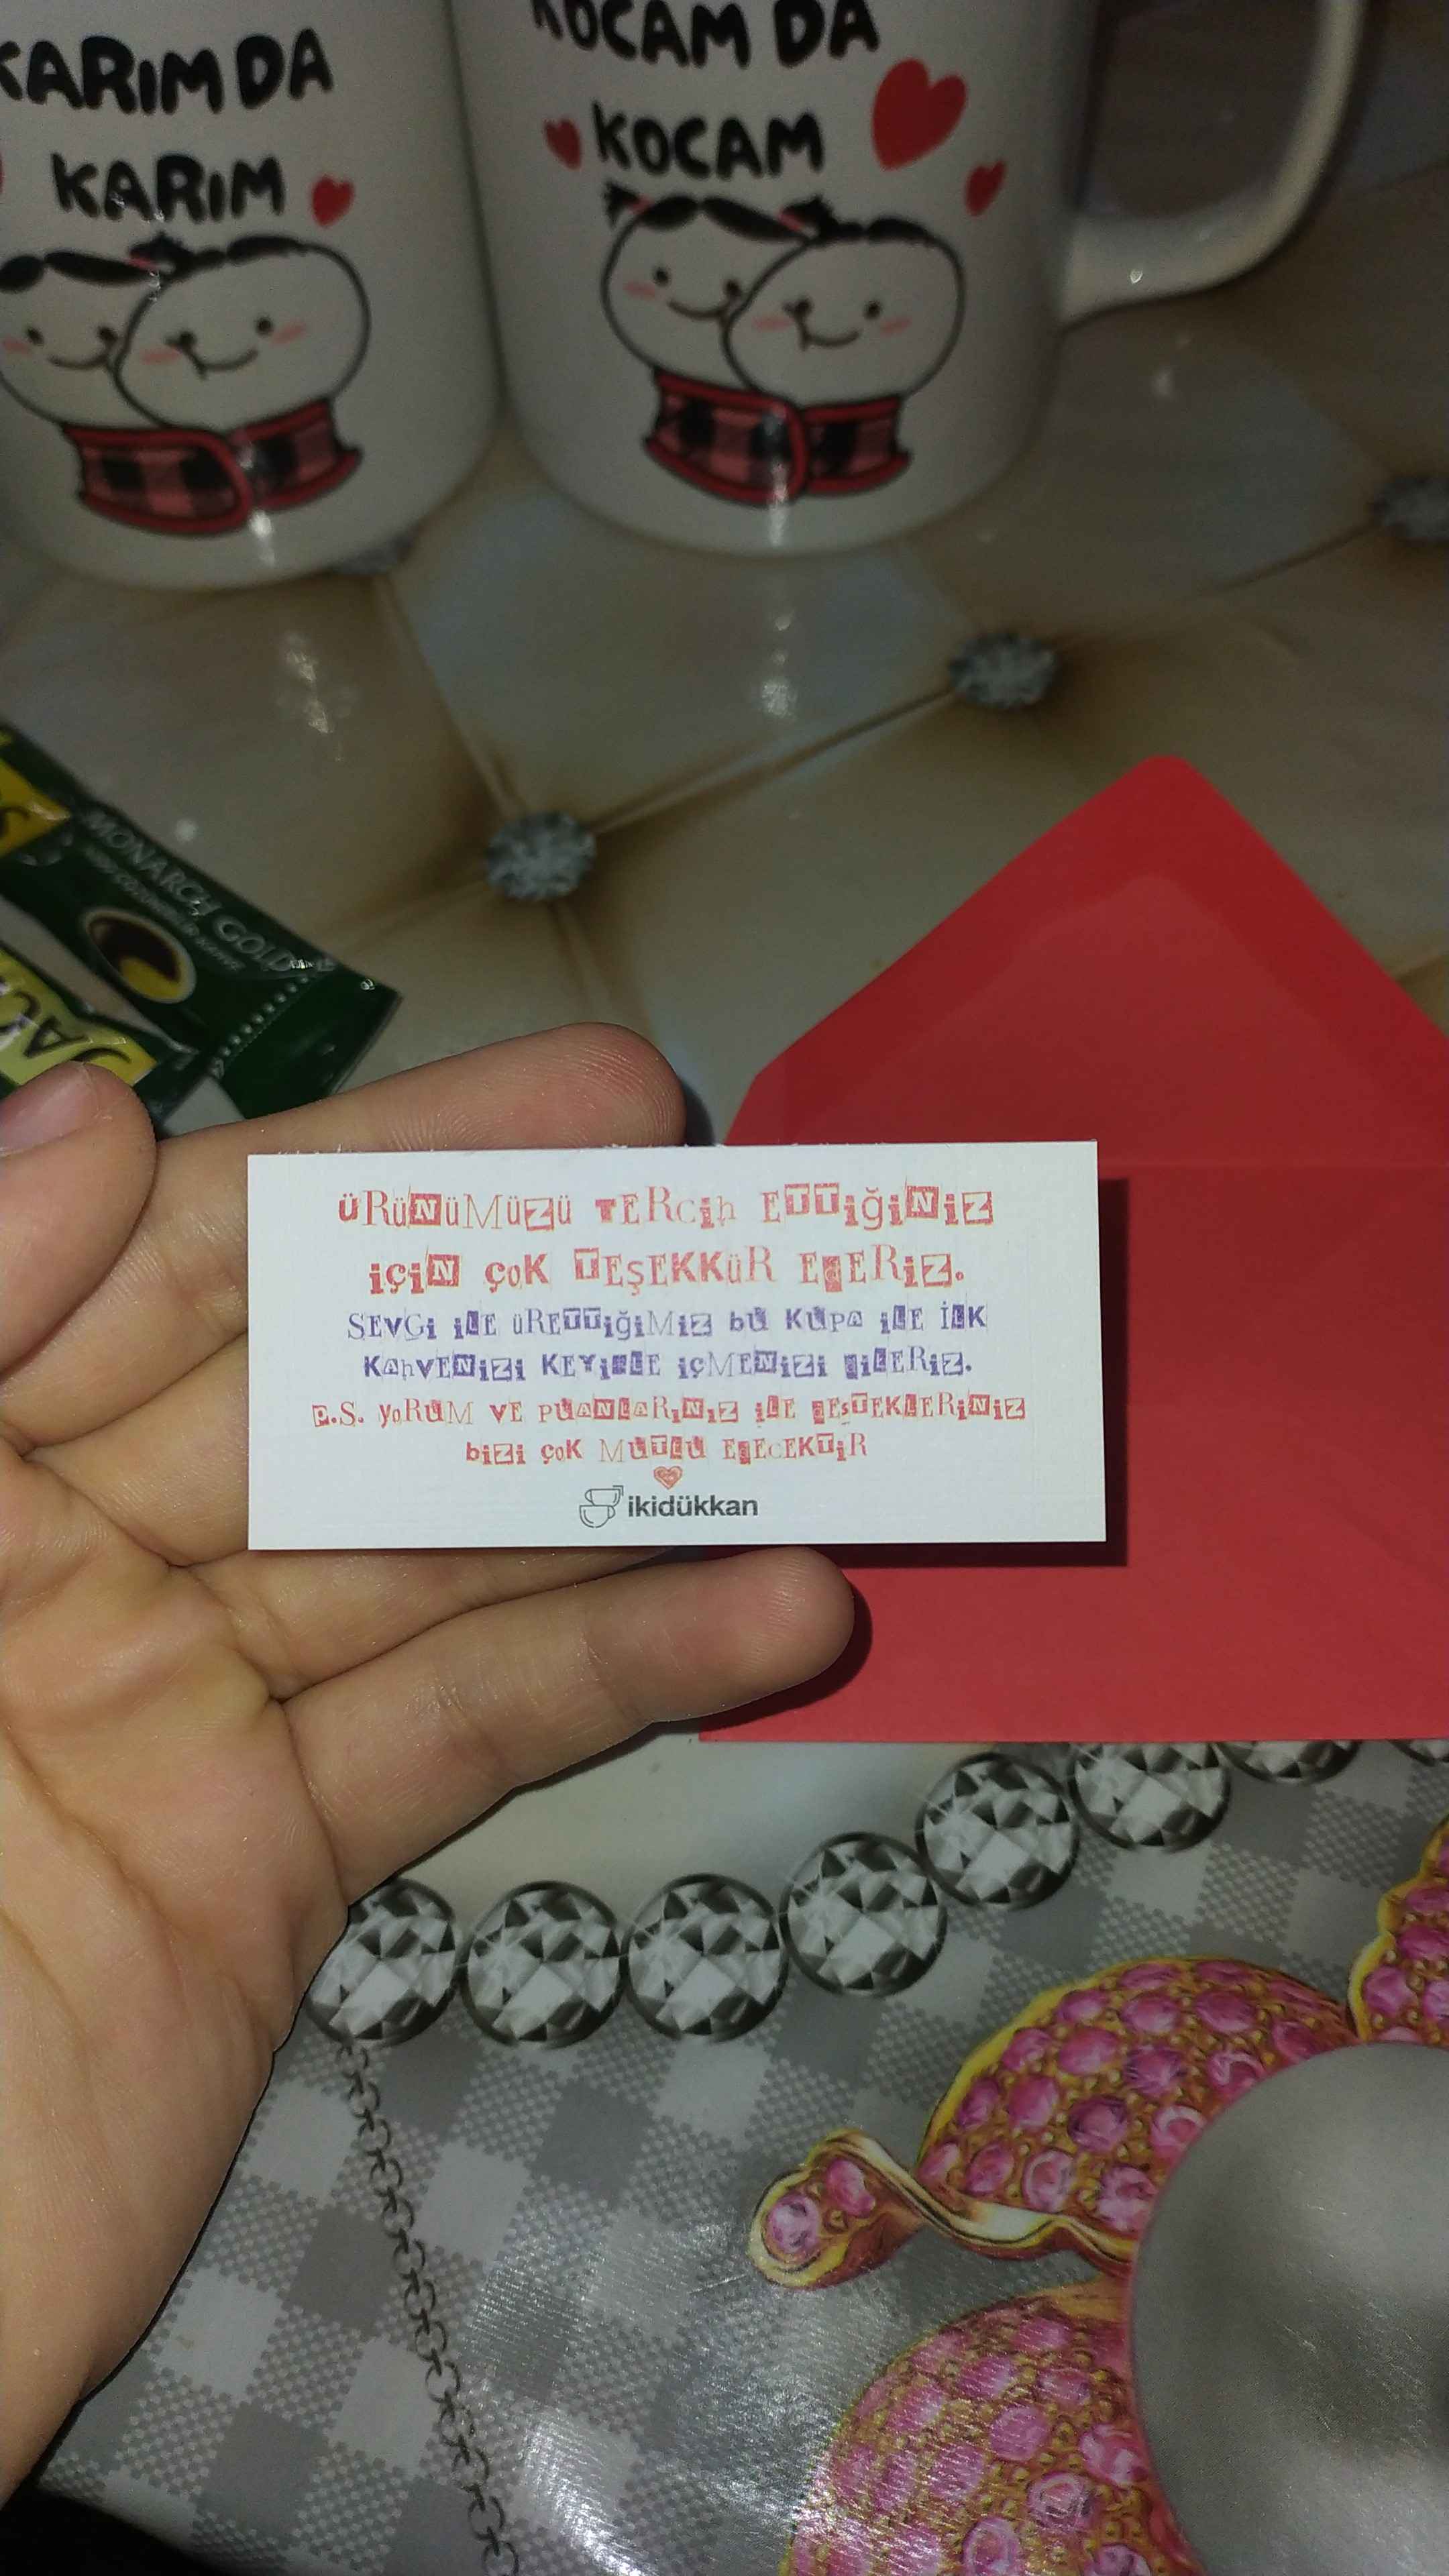 KARIM DA
KARIM
KOCAM DA
KOCAM
MONARCH GOLD
ÜRÜNÜMÜZÜ TERCİH ETTİĞİNİZ
İÇİN ÇOK TEŞEKKÜR EDERİZ.
SEVGİ İLE ÜRETTİĞİMİZ BU KUPA İLE İLK
KAHVENİZİ KEYİFLE İÇMENİZİ DİLERİZ.
P.S. YORUM VE PUANLARINIZ İLE DESTEKLERİNİZ
BİZİ ÇOK MUTLU EDECEKTİR
ikidükkan